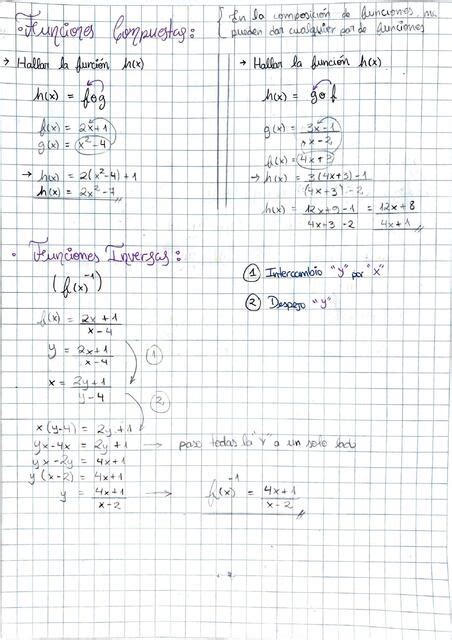 · Funciones Compuestas:
En la composición de funciones, me
pueden dar cualquier par de funciones
→ Hallar la función h(x)
h(x) = fog
f(x) = 2x+1
g(x) = x²-4
→ h(x) = 2(x²-4)+1
h(x) = 2x²-7
→ Hallar la función h(x)
h(x) = gof
g(x) = 3x-1
x-2
f(x) = 4x+3
→ h(x) = 3(4x+3)-1
(4x+3)-2
h(x) = 12x+9-1 = 12x+8
4x+3-2 4x+1
· Funciones Inversas:
(f(x)⁻¹)
f(x) = 2x+1
x-4
y = 2x+1
x-4
①
x = 2y+1
y-4
②
x(y-4) = 2y+1
yx-4x = 2y+1 → paso todas la "y" a un solo lado
yx-2y = 4x+1
y(x-2) = 4x+1
y = 4x+1 → f(x)⁻¹ = 4x+1
x-2 x-2
① Intercambio "y" por "x"
② Despejo "y"